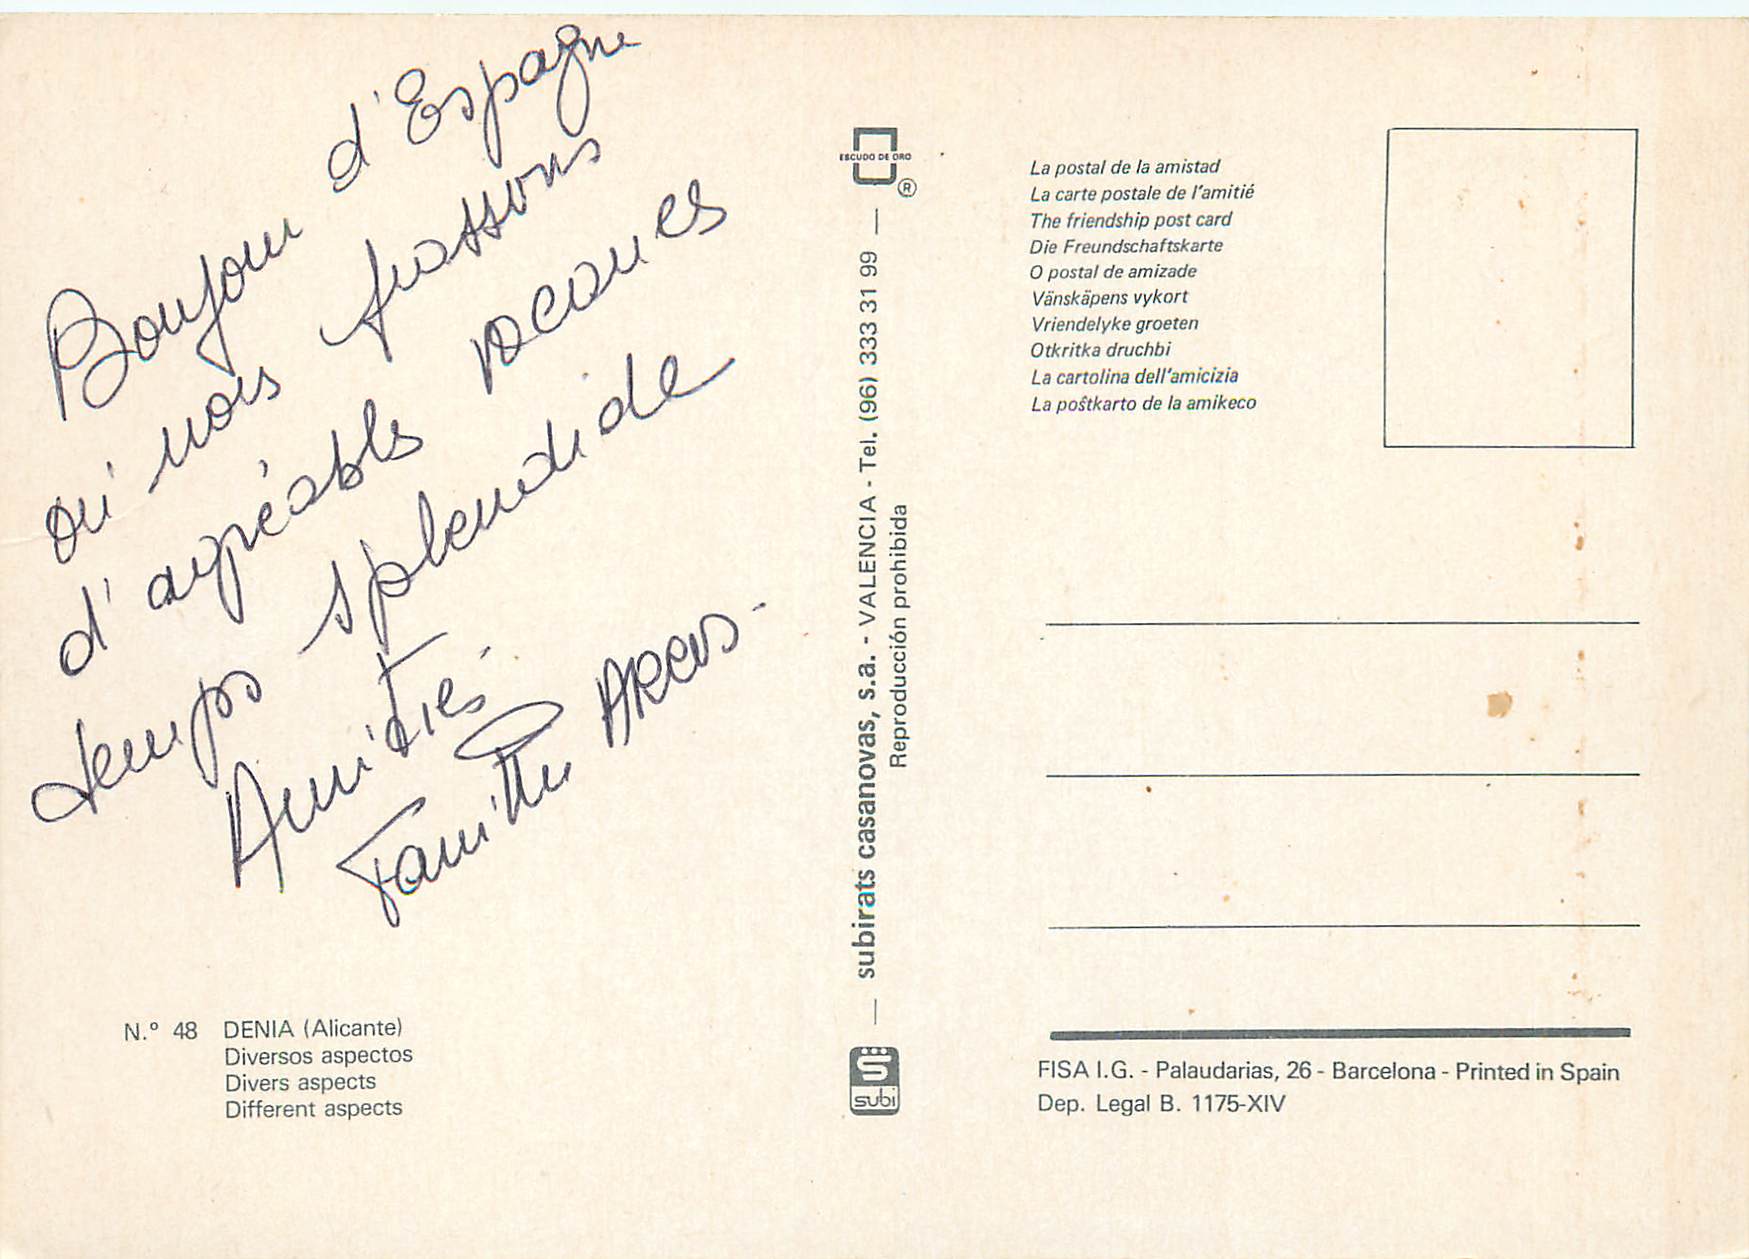 Bonjour d'Espagne
où nous passons
d'agréables vacances
temps splendide
Amitiés
Famille ARCOS
N.º 48 DENIA (Alicante)
Diversos aspectos
Divers aspects
Different aspects
ESCUDO DE ORO
®
— subirats casanovas, s.a. - VALENCIA - Tel. (96) 333 31 99 —
Reproducción prohibida
subi
La postal de la amistad
La carte postale de l'amitié
The friendship post card
Die Freundschaftskarte
O postal de amizade
Vänskäpens vykort
Vriendelyke groeten
Otkritka druchbi
La cartolina dell'amicizia
La poŝtkarto de la amikeco
FISA I.G. - Palaudarias, 26 - Barcelona - Printed in Spain
Dep. Legal B. 1175-XIV